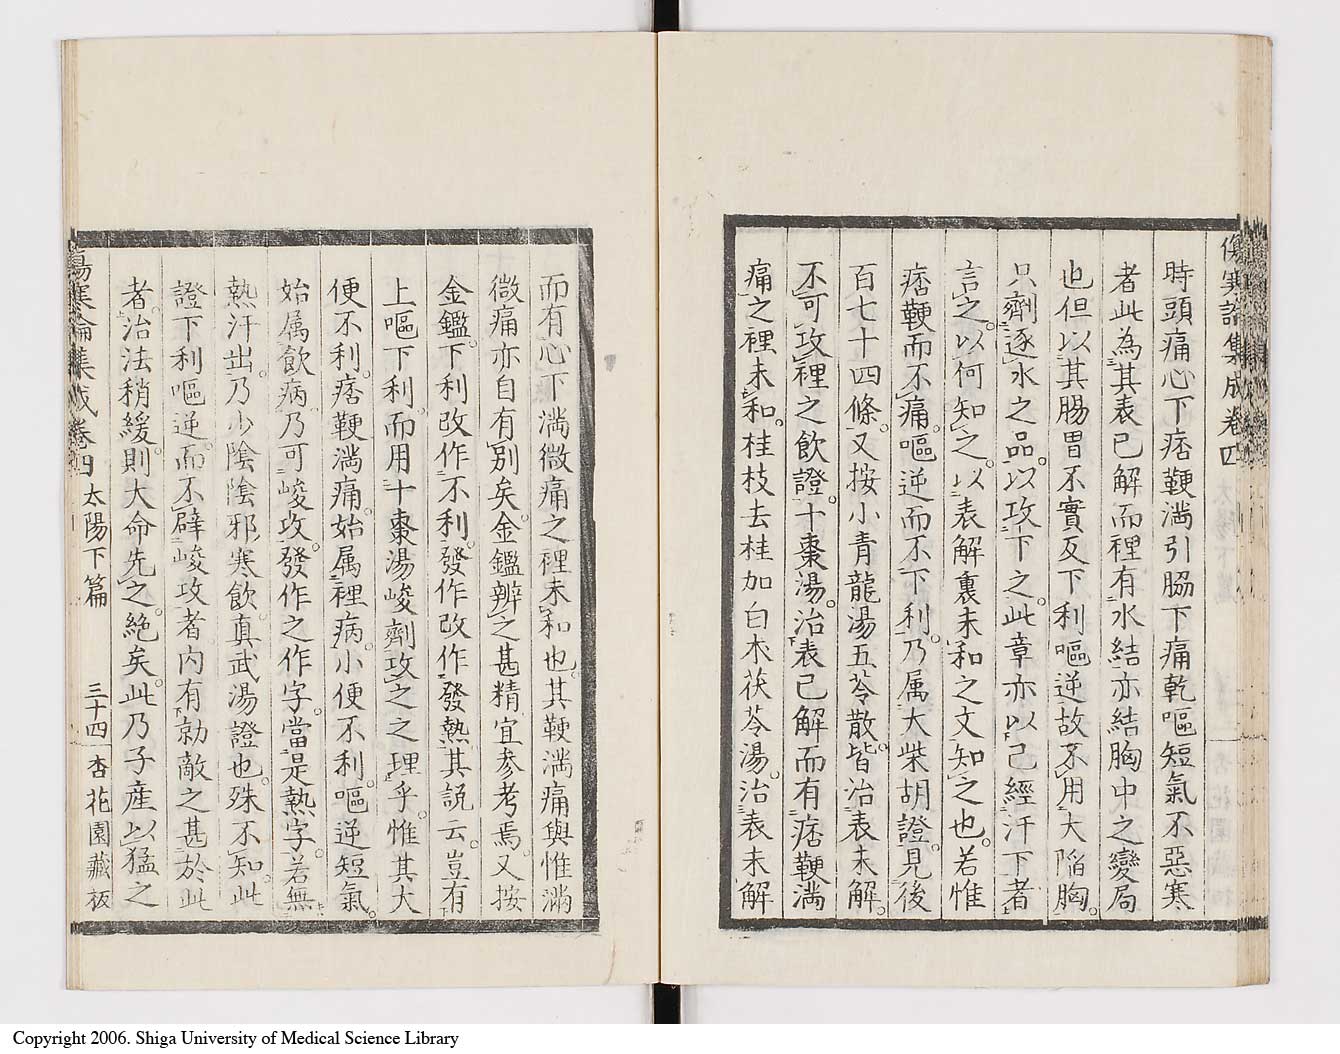 傷寒論集成卷四
時頭痛心下痞鞕滿引脇下痛乾嘔短氣不惡寒
者此為其表已解而裡有水結亦結胸中之變局
也但以其腸胃不實反下利嘔逆故不用大陷胸
只劑逐水之品以攻下之此章亦以已經汗下者
言之以何知之以表解裏未和之文知之也若惟
痞鞕而不痛嘔逆而不下利乃属大柴胡證見後
百七十四條又按小青龍湯五苓散皆治表未解
不可攻裡之飲證十棗湯治表已解而有痞鞕滿
痛之裡未和桂枝去桂加白朮茯苓湯治表未解
而有心下滿微痛之裡未和也其鞕滿痛與惟滿
微痛亦自有別矣金鑑辨之甚精宜参考焉又按
金鑑下利改作不利發作改作發熱其説云豈有
上嘔下利而用十棗湯峻劑攻之之理乎惟其大
便不利痞鞕滿痛始属裡病小便不利嘔逆短氣
始属飲病乃可峻攻發作之作字當是熱字若無
熱汗出乃少陰陰邪寒飲真武湯證也殊不知此
證下利嘔逆而不辟峻攻者內有勍敵之甚於此
者治法稍緩則大命先之絶矣此乃子產以猛之
傷寒論集成卷四 太陽下篇 三十四 杏花園藏板
Copyright 2006. Shiga University of Medical Science Library